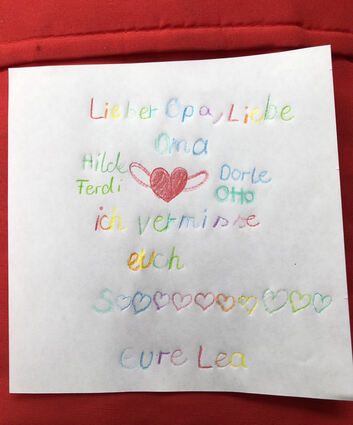 Lieber Opa, Liebe
Oma
Hilde Dorle
Ferdi Otto
ich vermisse
euch
S♡♡♡♡♡♡♡♡♡♡
Eure Lea